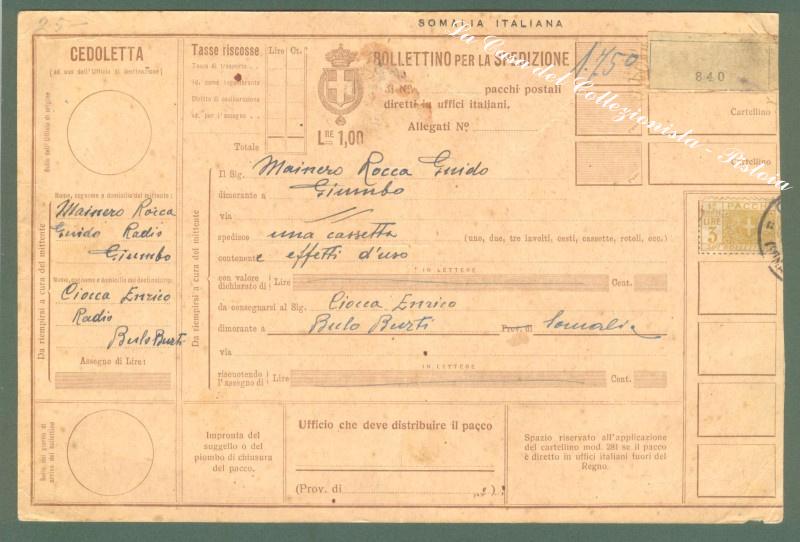 25-
SOMALIA ITALIANA
CEDOLETTA
(ad uso dell'Ufficio di destinazione)
Bollo dell'Ufficio di origine
Tasse riscosse Lire Ct.
Tassa di trasporto
Id. come ingombrante
Diritto di assicurazione
Id. per l'assegno
Totale
BOLLETTINO PER LA SPEDIZIONE
di N° pacchi postali
diretti in uffici italiani.
Allegati N°
LRE 1,00
1.750
840
Cartellino
Cartellino
La Casa del Collezionista - Pistoia
Da riempirsi a cura del mittente
Nome, cognome e domicilio del mittente:
Mainero Rocca
Guido Radio
Giumbo
Nome, cognome e domicilio del destinatario:
Ciocca Enrico
Radio
Bulo Burti
Assegno di Lire:
Da riempirsi a cura del mittente
Il Sig. Mainero Rocca Guido
dimorante a Giumbo
via
spedisce una cassetta (uno, due, tre involti, cesti, cassette, rotoli, ecc.)
contenente effetti d'uso
IN LETTERE
con valore dichiarato di Lire Cent.
da consegnarsi al Sig. Ciocca Enrico
dimorante a Bulo Burti Prov. di Somalia
via
IN LETTERE
riscuotendo l'assegno di Lire Cent.
PACCHI
LIRE
3
Impronta del
suggello o del
piombo di chiusura
del pacco.
Ufficio che deve distribuire il pacco
(Prov. di )
Spazio riservato all'applicazione
del cartellino mod. 281 se il pacco
è diretto in uffici italiani fuori del
Regno.